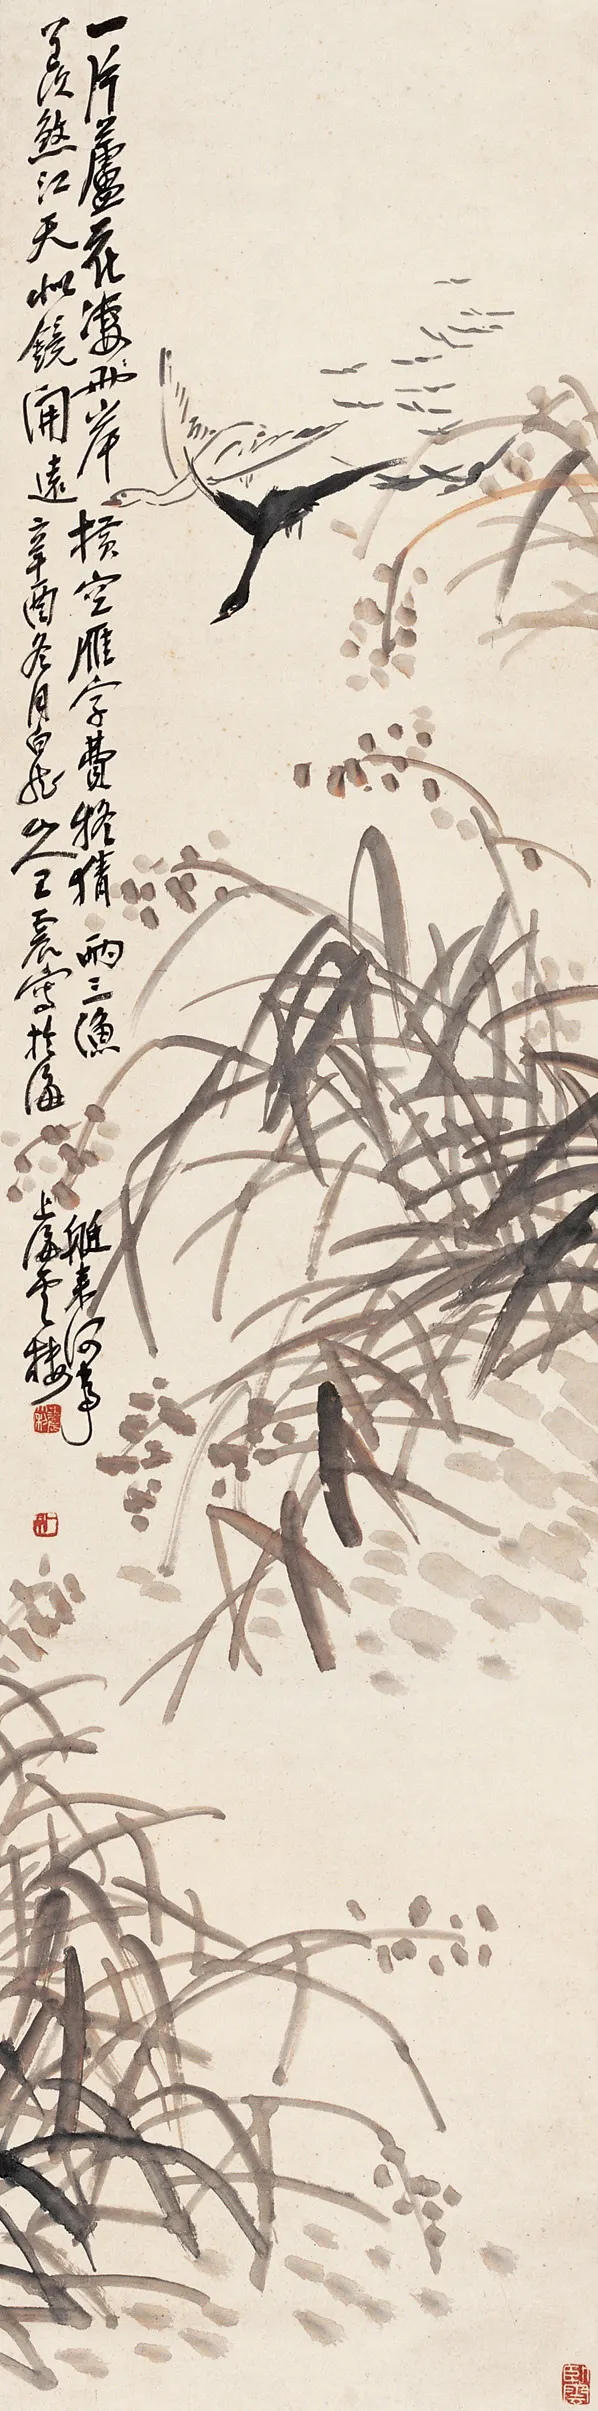 一片蘆花濅兩岸 橫空雁字費疑猜 兩三漁艇來何事
羨煞江天似鏡開 遠 辛酉冬月白龍山人王震寫於海上海雲樓